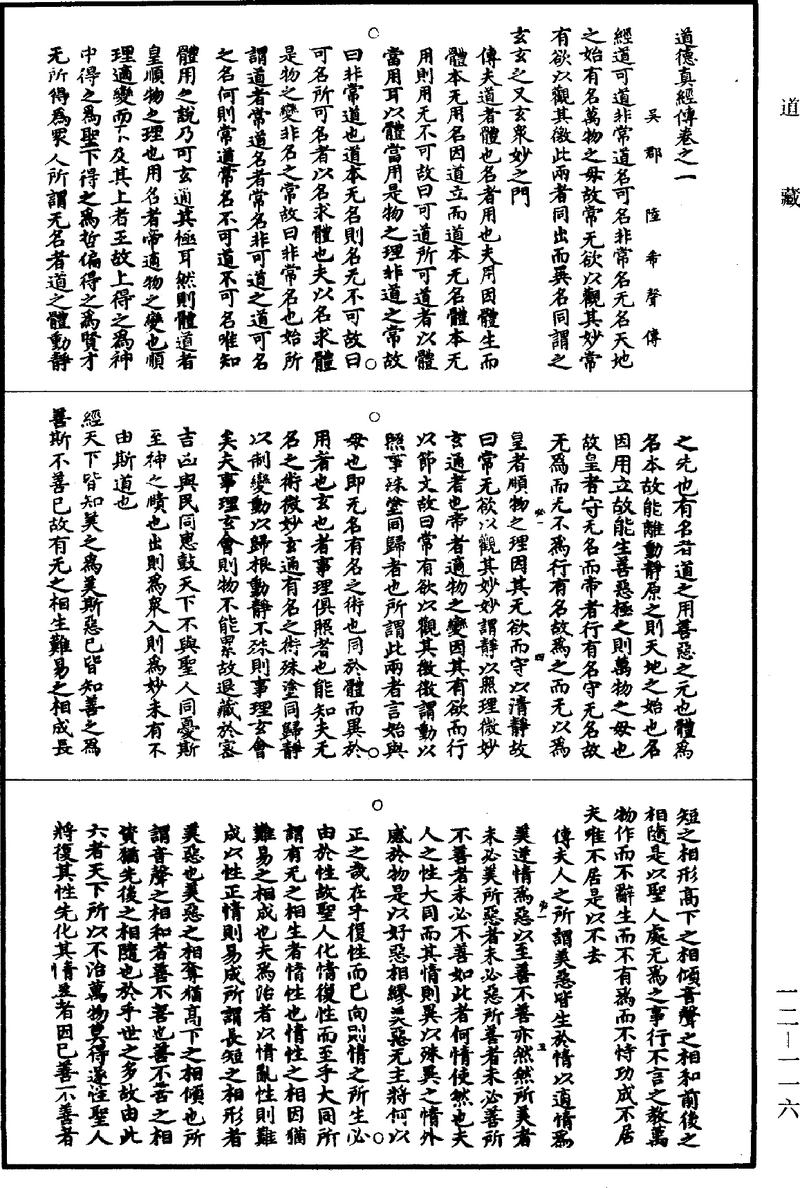 道藏
一二—一一六
道德真經傳卷之一
吳郡陸希聲傳
經道可道非常道名可名非常名无名天地
之始有名萬物之母故常无欲以觀其妙常
有欲以觀其徼此兩者同出而異名同謂之
玄玄之又玄衆妙之門
傳夫道者體也名者用也夫用因體生而
體本无用名因道立而道本无名體本无
用則用无不可故曰可道所可道者以體
當用耳以體當用是物之理非道之常故
曰非常道也道本无名則名无不可故曰
可名所可名者以名求體也夫以名求體
是物之變非名之常故曰非常名也始所
謂道者常道名者常名非可道之道可名
之名何則常道常名不可道不可名唯知
體用之說乃可玄通其極耳然則體道者
皇順物之理也用名者帝適物之變也順
理適變而下及其上者王故上得之爲神
中得之爲聖下得之爲哲偏得之爲賢才
无所得爲衆人所謂无名者道之體動靜
之先也有名者道之用善惡之元也體爲
名本故能離動靜原之則天地之始也名
因用立故能生善惡極之則萬物之母也
故皇者守无名而帝者行有名守无名故
无爲而无不爲行有名故爲之而无以爲
皇者順物之理因其无欲而守以清靜故
曰常无欲以觀其妙妙謂靜以照理微妙
玄通者也帝者適物之變因其有欲而行
以節文故曰常有欲以觀其徼徼謂動以
照事殊塗同歸者也所謂此兩者言始與
母也即无名有名之術也同於體而異於
用者也玄也者事理俱照者也能知夫无
名之術微妙玄通有名之術殊塗同歸靜
以制變動以歸根動靜不殊則事理玄會
矣夫事理玄會則物不能累故退藏於密
吉凶與民同患鼓天下不與聖人同憂斯
至神之賾也出則爲衆入則爲妙未有不
由斯道也
經天下皆知美之爲美斯惡已皆知善之爲
善斯不善已故有无之相生難易之相成長
短之相形高下之相傾音聲之相和前後之
相隨是以聖人處无爲之事行不言之教萬
物作而不辭生而不有爲而不恃功成不居
夫唯不居是以不去
傳夫人之所謂美惡皆生於情以適情爲
美逆情爲惡以至善不善亦然然所美者
未必美所惡者未必惡所善者未必善所
不善者未必不善如此者何情使然也夫
人之性大同而其情則異以殊異之情外
感於物是以好惡相繆美惡无主將何以
正之哉在乎復性而已向則情之所生必
由於性故聖人化情復性而至乎大同所
謂有无之相生者情性也情性之相因猶
難易之相成也夫爲治者以情亂性則難
成以性正情則易成所謂長短之相形者
美惡也美惡之相奪猶高下之相傾也所
謂音聲之相和者善不善也善不善之相
資猶先後之相隨也於乎世之多故由此
六者天下所以不治萬物莫得遂性聖人
將復其性先化其情善者因已善不善者